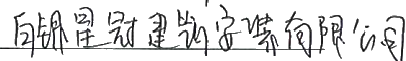 白银星冠建凯安装有限公司